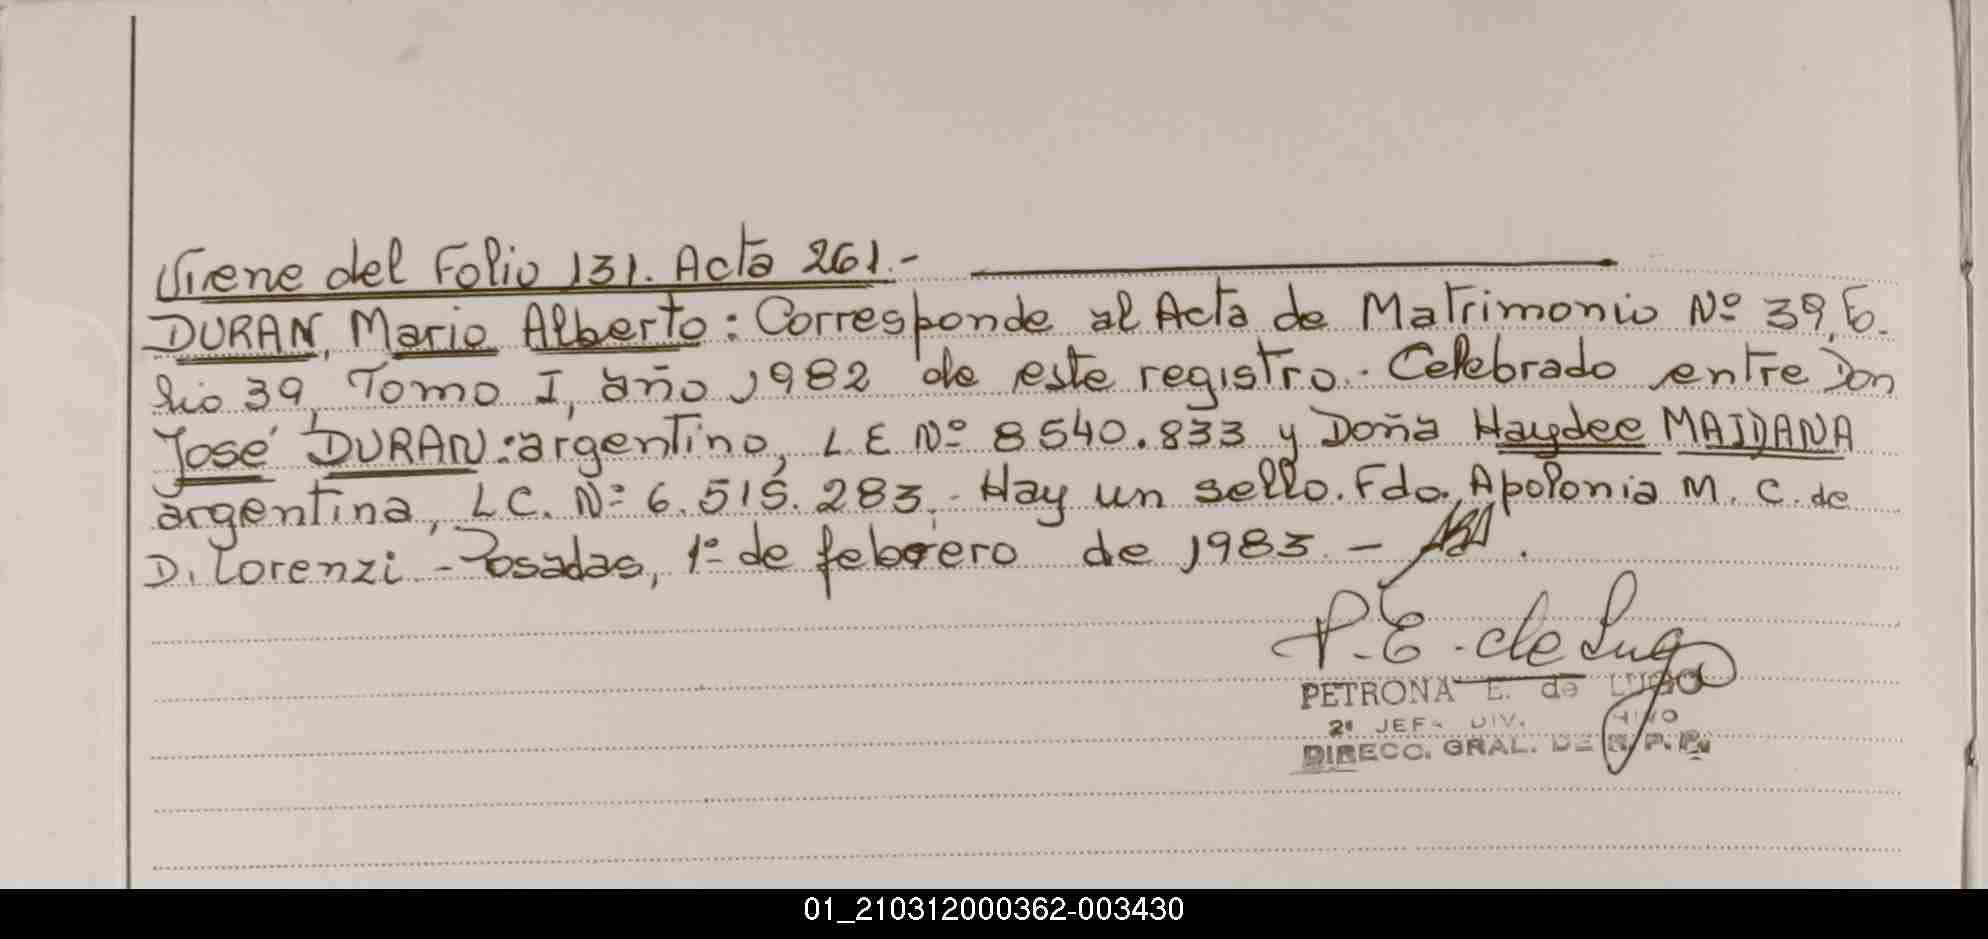 Viene del Folio 131. Acta 261.-
DURAN, Mario Alberto: Corresponde al Acta de Matrimonio Nº 39, Fo-
lio 39, Tomo I, año 1982 de este registro.- Celebrado entre Don
José DURAN: argentino, L.E Nº 8540.833 y Doña Haydee MAIDANA
argentina, L C. Nº 6.515.283.- Hay un sello. Fdo. Apolonia M. C. de
D. Lorenzi.- Posadas, 1º de febrero de 1983.-
P. E. de Lugo
PETRONA E. de LUGO
2º JEFA DIV.
DIRECC. GRAL. DE R. P. P.
01_210312000362-003430